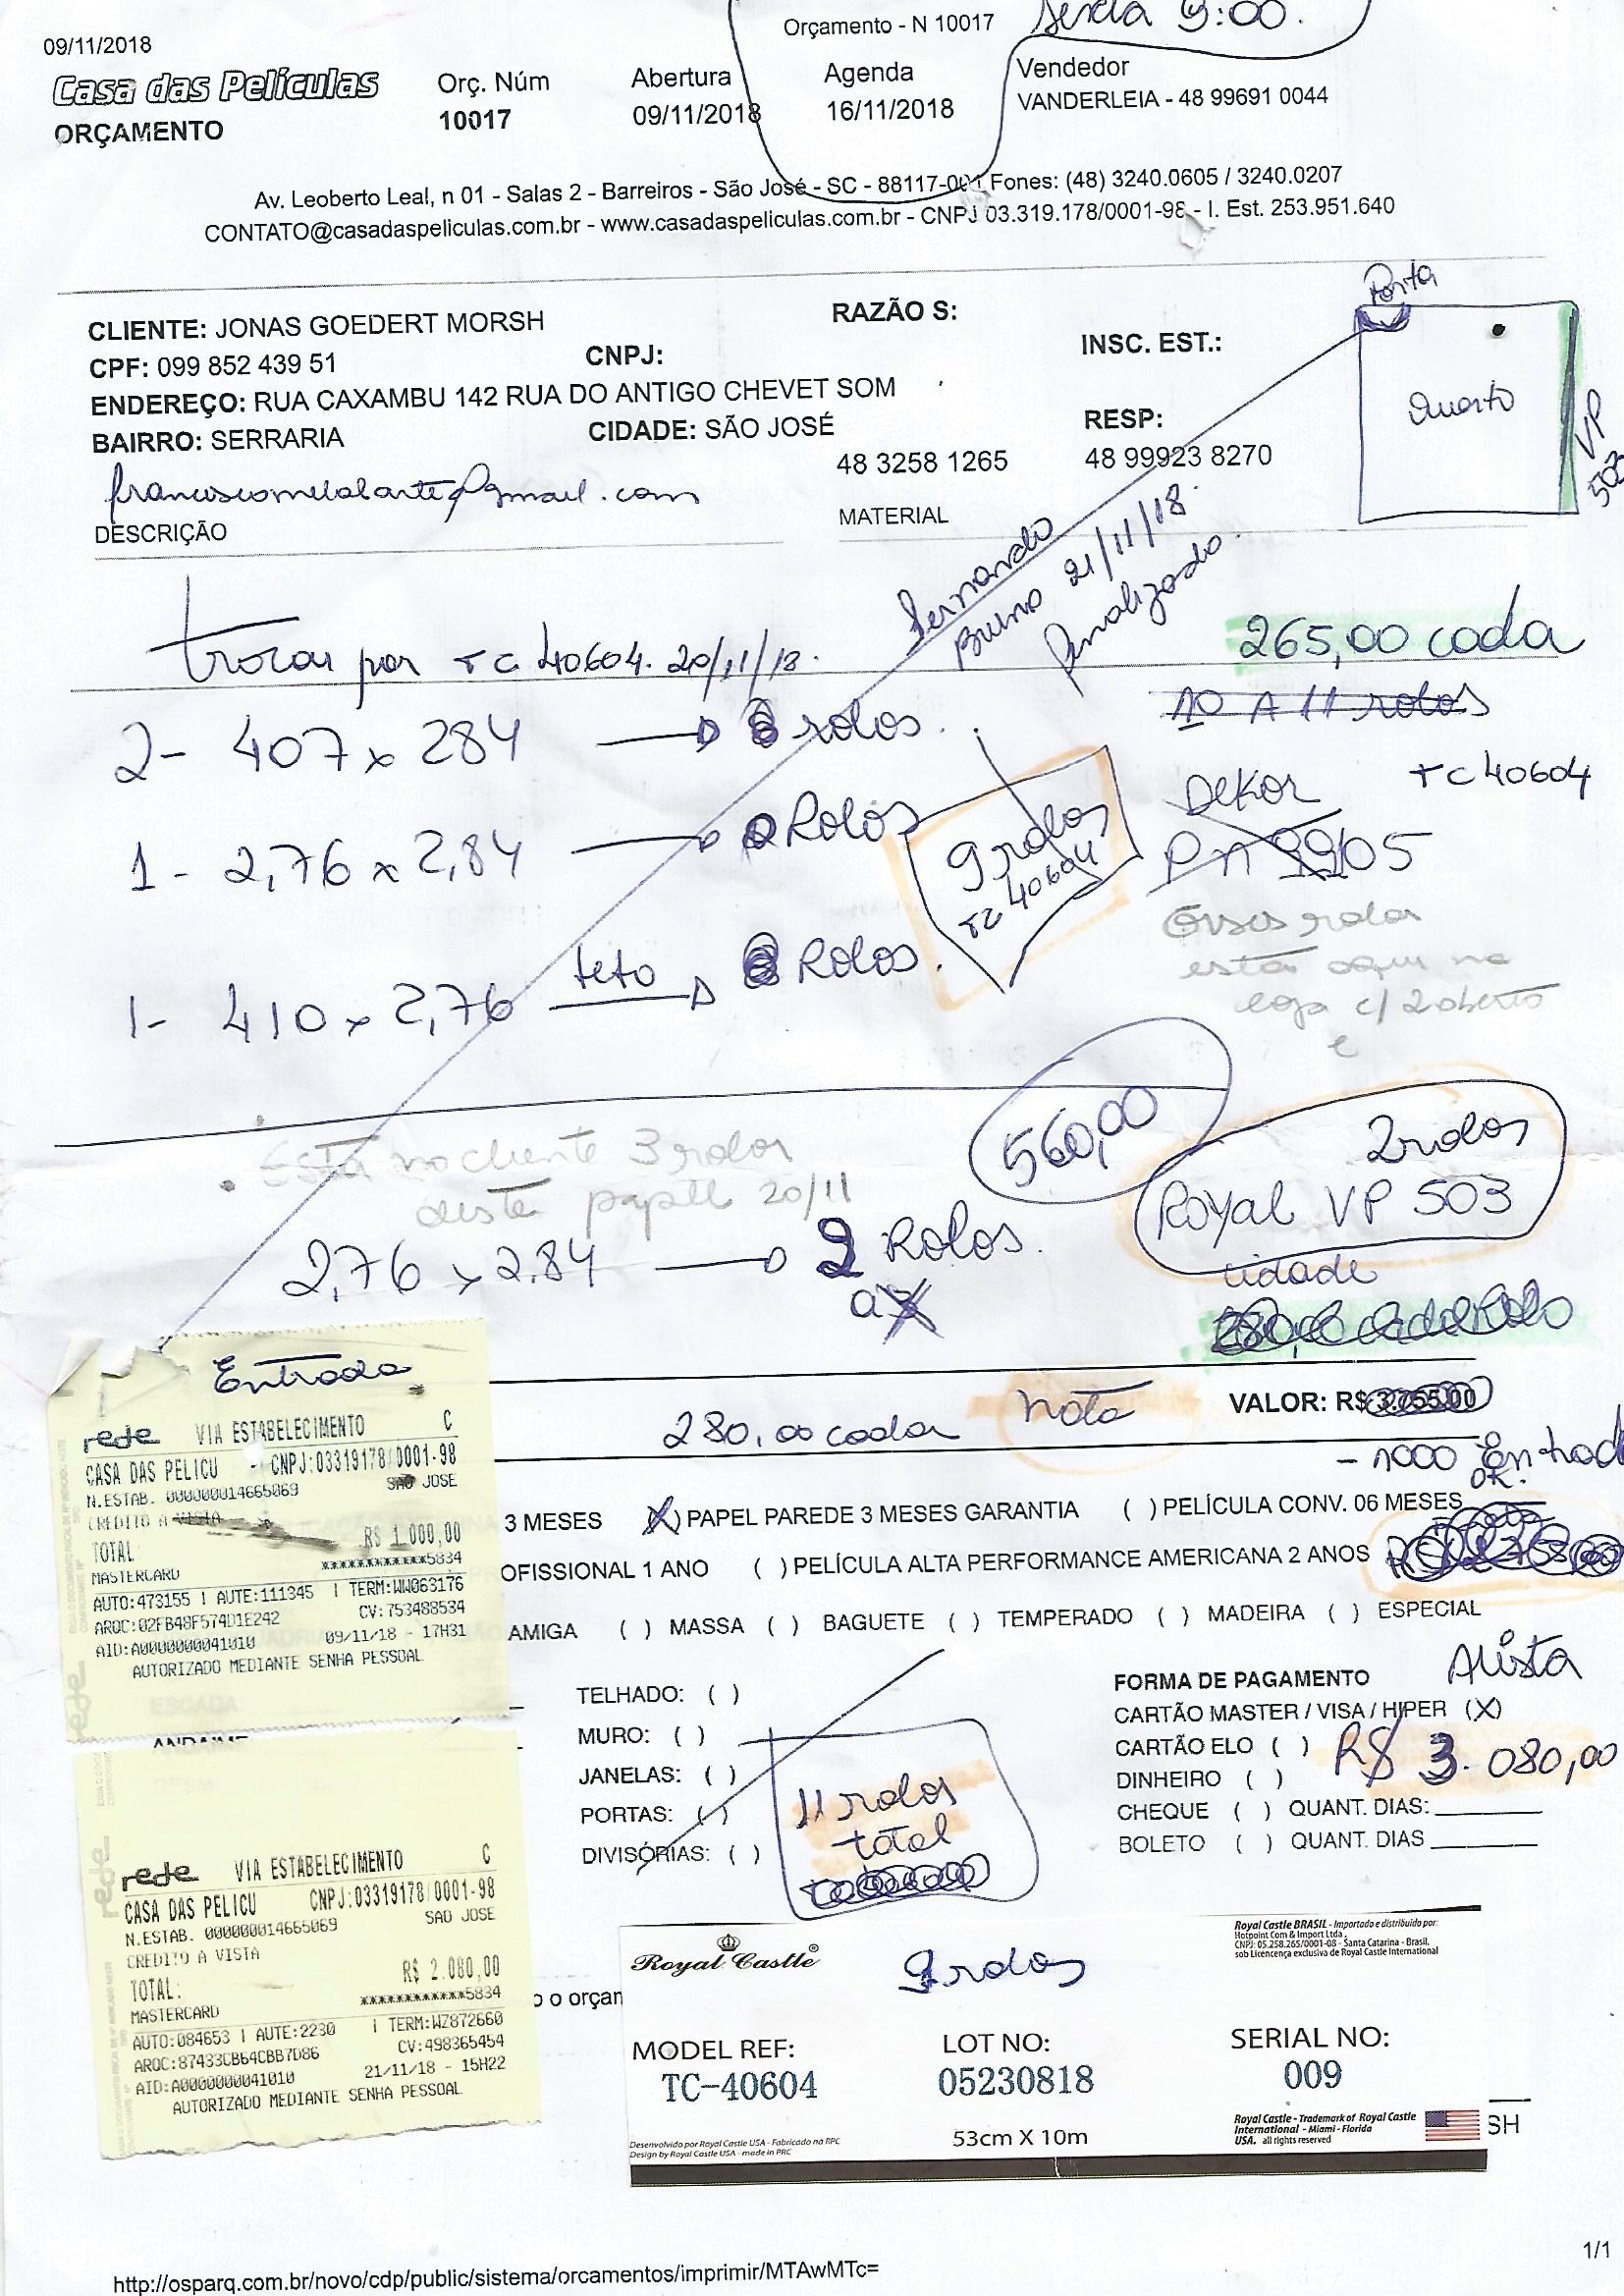 09/11/2018
Orçamento - N 10017
sexta 9:00.
Casa das Películas
ORÇAMENTO
Orç. Núm
10017
Abertura
09/11/2018
Agenda
16/11/2018
Vendedor
VANDERLEIA - 48 99691 0044
Av. Leoberto Leal, n 01 - Salas 2 - Barreiros - São José - SC - 88117-001 Fones: (48) 3240.0605 / 3240.0207
CONTATO@casadaspeliculas.com.br - www.casadaspeliculas.com.br - CNPJ 03.319.178/0001-98 - I. Est. 253.951.640
Porta
Quarto
VP
503
CLIENTE: JONAS GOEDERT MORSH
RAZÃO S:
CPF: 099 852 439 51
CNPJ:
INSC. EST.:
ENDEREÇO: RUA CAXAMBU 142 RUA DO ANTIGO CHEVET SOM
BAIRRO: SERRARIA
CIDADE: SÃO JOSÉ
RESP:
48 3258 1265
48 99923 8270
DESCRIÇÃO
MATERIAL
Fernando
Bruno 21/11/18.
finalizado.
trocar por TC 40604. 20/11/18.
265,00 cada
10 A 11 rolos
2- 407 x 284 → 8 rolos.
TC 40604
1- 2,76 x 2,84 → Rolos
9 rolos
TC 40604
DEKOR
PA 9905
Esses rolos
estão aqui na
loja c/ Roberto
e
1- 410 x 2,76 teto → Rolos.
560,00
2 rolos
Royal VP 503
cidade
Está no cliente 3 rolos
deste papel 20/11
2,76 x 2.84 → 2 Rolos.
a 3
Entrada
rede VIA ESTABELECIMENTO C
CASA DAS PELICU - CNPJ:03319178/0001-98
N.ESTAB. 000000014665069 SAO JOSE
CREDITO A VISTA
TOTAL: R$ 1.000,00
MASTERCARD ************5834
AUTO:473155 | AUTE:111345 | TERM:WW063176
ARQC:02FB48F574D1E242 CV:753488534
AID:A0000000041010 09/11/18 - 17H31
AUTORIZADO MEDIANTE SENHA PESSOAL
280,00 cada
nota
VALOR: R$ 3.755,00
- 1000 Entrad
OK.
3 MESES (X) PAPEL PAREDE 3 MESES GARANTIA ( ) PELÍCULA CONV. 06 MESES
OFISSIONAL 1 ANO ( ) PELÍCULA ALTA PERFORMANCE AMERICANA 2 ANOS
AMIGA ( ) MASSA ( ) BAGUETE ( ) TEMPERADO ( ) MADEIRA ( ) ESPECIAL
TELHADO: ( )
MURO: ( )
JANELAS: ( )
PORTAS: ( )
DIVISÓRIAS: ( )
11 rolos
total
FORMA DE PAGAMENTO
Avista
CARTÃO MASTER / VISA / HIPER (X)
CARTÃO ELO ( )
R$ 3.080,00
DINHEIRO ( )
CHEQUE ( ) QUANT. DIAS:
BOLETO ( ) QUANT. DIAS
rede VIA ESTABELECIMENTO C
CASA DAS PELICU CNPJ:03319178/0001-98
N.ESTAB. 000000014665069 SAO JOSE
CREDITO A VISTA
TOTAL: R$ 2.080,00
MASTERCARD ************5834
AUTO:084653 | AUTE:2230 | TERM:WZ872660
ARQC:87433CB64CBB7D86 CV:498365454
AID:A0000000041010 21/11/18 - 15H22
AUTORIZADO MEDIANTE SENHA PESSOAL
o o orçam
Royal Castle®
9 rolos
Royal Castle BRASIL - Importado e distribuido por:
Hotpoint Com & Import Ltda.
CNPJ: 05.258.265/0001-08 - Santa Catarina - Brasil,
sob Licencença exclusiva de Royal Castle International
MODEL REF:
TC-40604
LOT NO:
05230818
SERIAL NO:
009
53cm X 10m
Desenvolvido por Royal Castle USA - Fabricado na RPC
Design by Royal Castle USA - made in PRC
Royal Castle - Trademark of Royal Castle
International - Miami - Florida
USA. all rights reserved
SH
1/1
http://osparq.com.br/novo/cdp/public/sistema/orcamentos/imprimir/MTAwMTc=